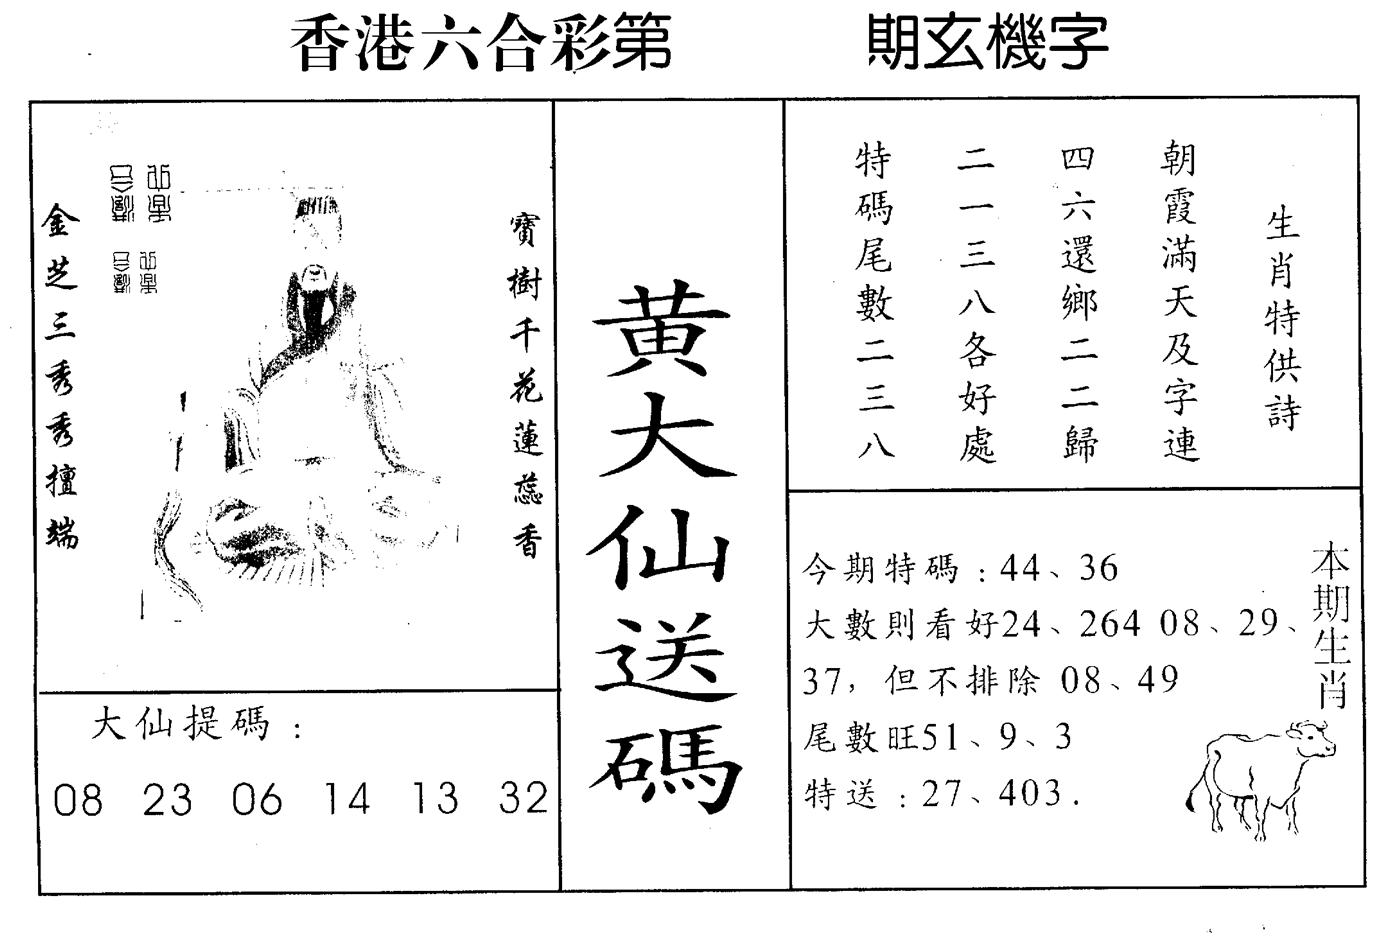 香港六合彩第 期玄機字
寶樹千花蓮蕊香
金芝三秀秀擅端
黃大仙送碼
大仙提碼：
08 23 06 14 13 32
生肖特供詩
朝霞滿天及字連
四六還鄉二二歸
二一三八各好處
特碼尾數二三八
本期生肖
今期特碼：44、36
大數則看好24、264 08、29、
37，但不排除 08、49
尾數旺51、9、3
特送：27、403.